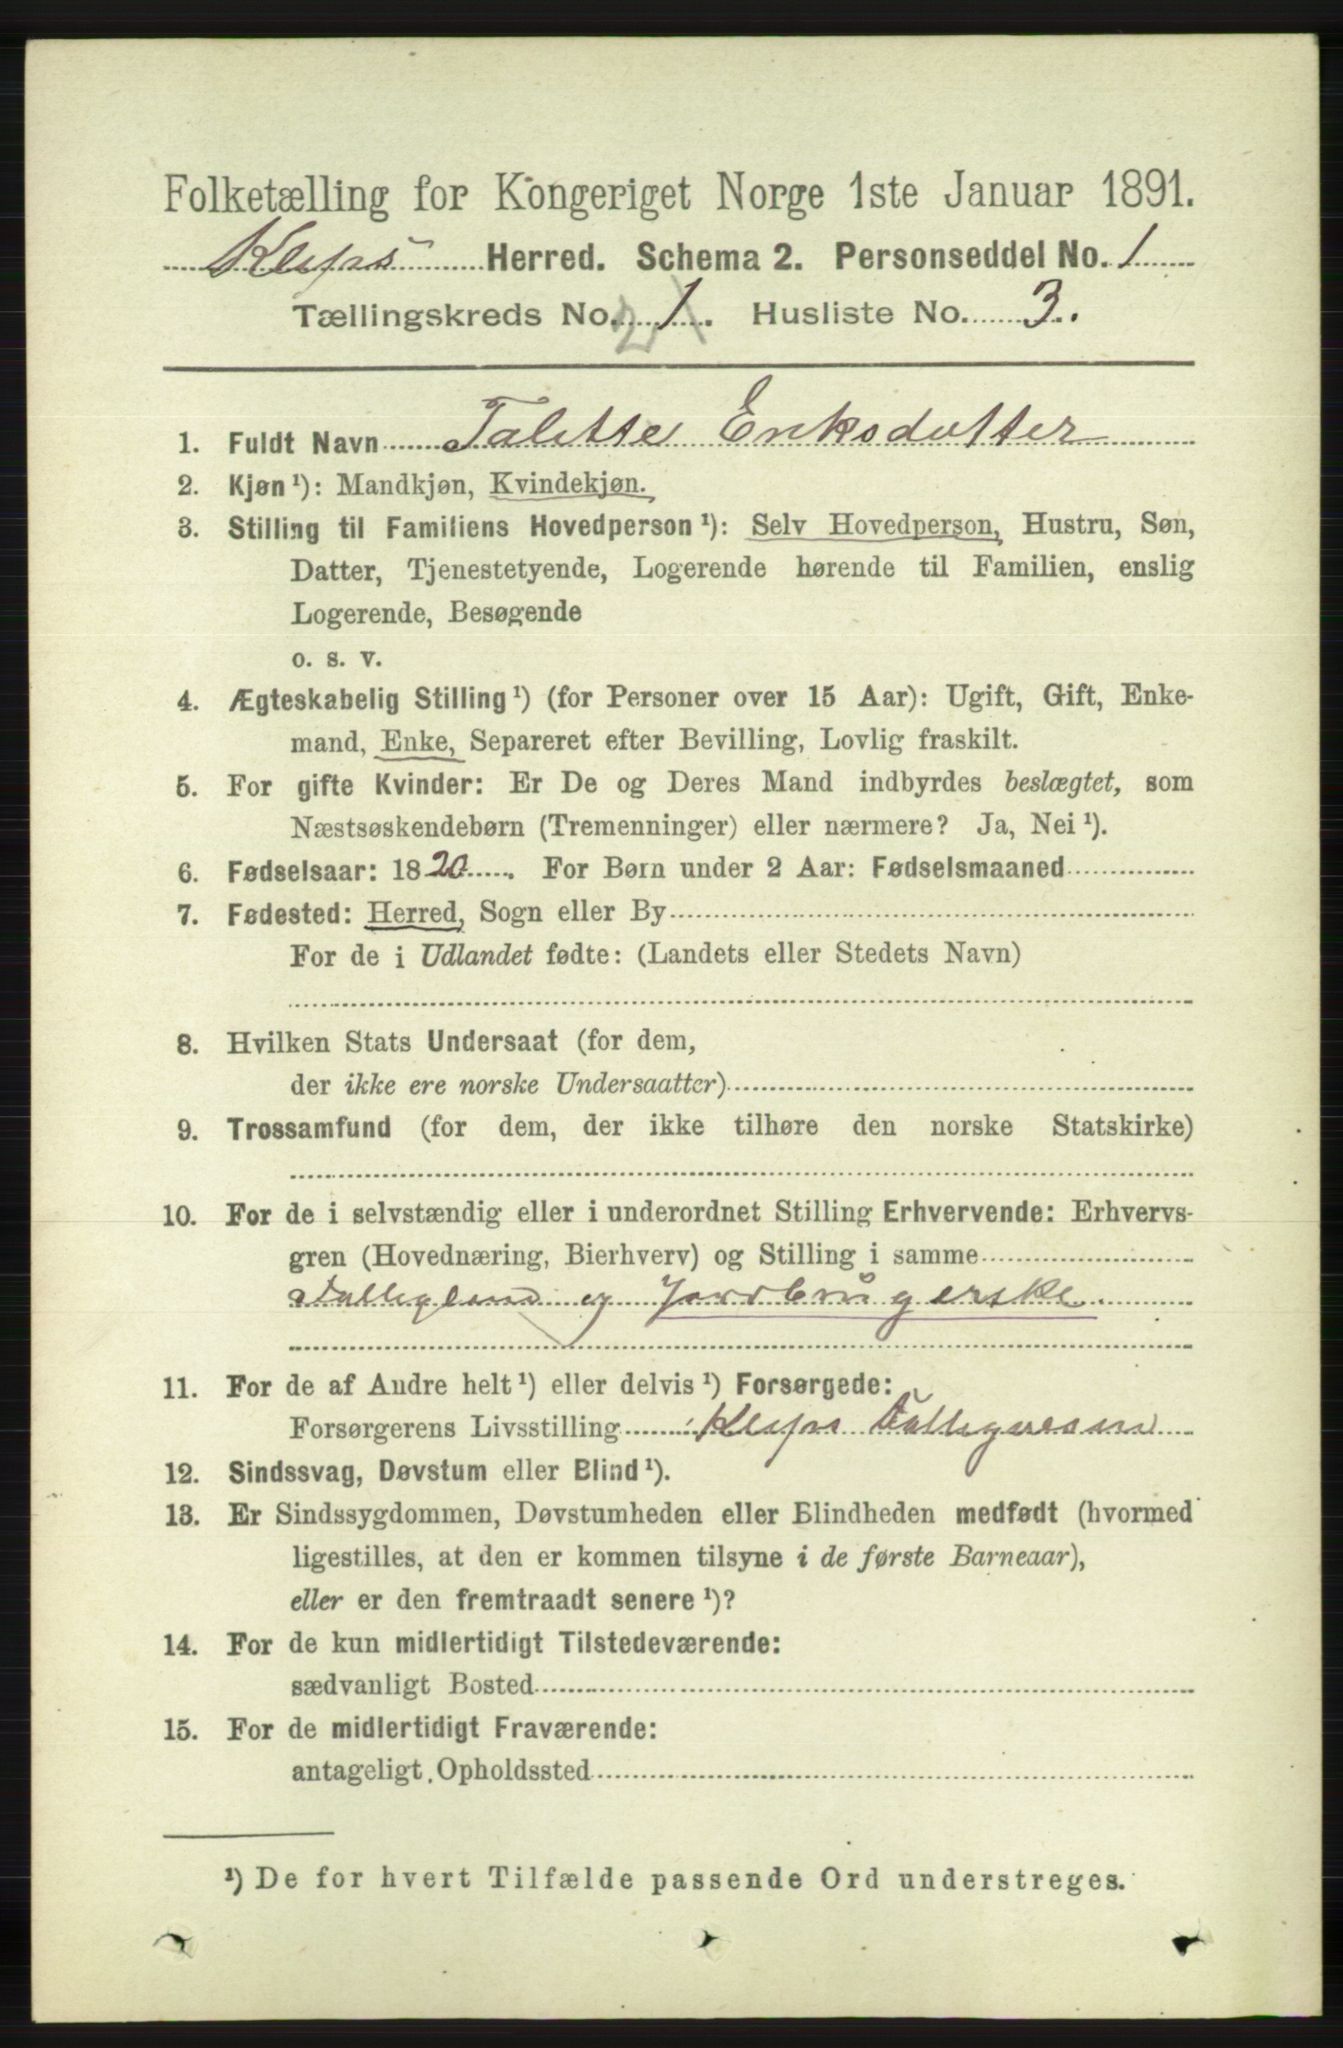 Folketælling for Kongeriget Norge 1ste Januar 1891.
Kleps Herred. Schema 2. Personseddel No. 1
Tællingskreds No. 1. 2 Husliste No. 3.
1. Fuldt Navn Talette Eriksdatter
2. Kjøn ¹): Mandkjøn, Kvindekjøn.
3. Stilling til Familiens Hovedperson ¹): Selv Hovedperson, Hustru, Søn,
Datter, Tjenestetyende, Logerende hørende til Familien, enslig
Logerende, Besøgende
o. s. v.
4. Ægteskabelig Stilling ¹) (for Personer over 15 Aar): Ugift, Gift, Enke-
mand, Enke, Separeret efter Bevilling, Lovlig fraskilt.
5. For gifte Kvinder: Er De og Deres Mand indbyrdes beslægtet, som
Næstsøskendebørn (Tremenninger) eller nærmere? Ja, Nei ¹).
6. Fødselsaar: 1820. For Børn under 2 Aar: Fødselsmaaned
7. Fødested: Herred, Sogn eller By
For de i Udlandet fødte: (Landets eller Stedets Navn)
8. Hvilken Stats Undersaat (for dem,
der ikke ere norske Undersaatter)
9. Trossamfund (for dem, der ikke tilhøre den norske Statskirke)
10. For de i selvstændig eller i underordnet Stilling Erhvervende: Erhvervs-
gren (Hovednæring, Bierhverv) og Stilling i samme
og Jordbrugerske.
11. For de af Andre helt ¹) eller delvis ¹) Forsørgede:
Forsørgerens Livsstilling Kleps
12. Sindssvag, Døvstum eller Blind ¹).
13. Er Sindssygdommen, Døvstumheden eller Blindheden medfødt (hvormed
ligestilles, at den er kommen tilsyne i de første Barneaar),
eller er den fremtraadt senere ¹)?
14. For de kun midlertidigt Tilstedeværende:
sædvanligt Bosted
15. For de midlertidigt Fraværende:
antageligt Opholdssted
¹) De for hvert Tilfælde passende Ord understreges.